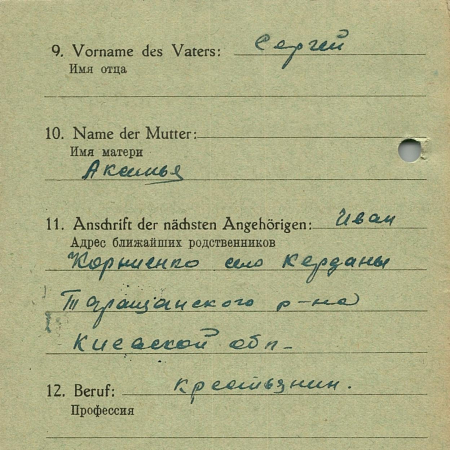 9. Vorname des Vaters: Сергей
Имя отца
10. Name der Mutter:
Имя матери
Аксинья
11. Anschrift der nächsten Angehörigen: Иван
Адрес ближайших родственников
Корниенко село Керданы
Таращанского р-на
Киевской обл-
12. Beruf: крестьянин.
Профессия